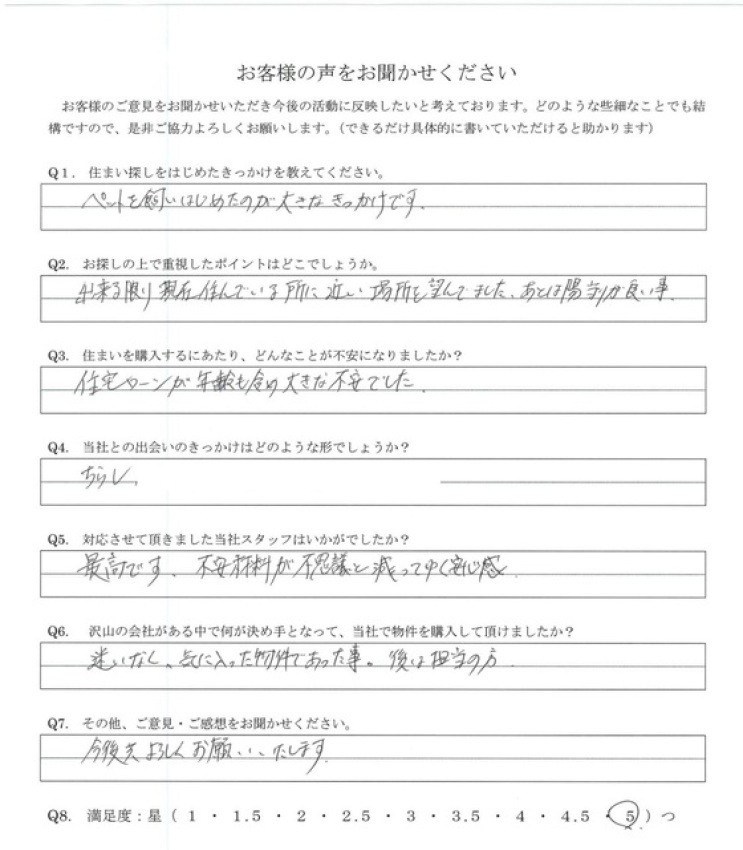 お客様の声をお聞かせください
お客様のご意見をお聞かせいただき今後の活動に反映したいと考えております。どのような些細なことでも結
構ですので、是非ご協力よろしくお願いします。（できるだけ具体的に書いていただけると助かります）
Q1. 住まい探しをはじめたきっかけを教えてください。
ペットを飼いはじめたのが大きなきっかけです。
Q2. お探しの上で重視したポイントはどこでしょうか。
出来る限り現在住んでいる所に近い場所を望んでました、あとは陽当りが良い事。
Q3. 住まいを購入するにあたり、どんなことが不安になりましたか？
住宅ローンが年齢も含め大きな不安でした。
Q4. 当社との出会いのきっかけはどのような形でしょうか？
ちらし、
Q5. 対応させて頂きました当社スタッフはいかがでしたか？
最高です、不安材料が不思議と減ってゆく安心感。
Q6. 沢山の会社がある中で何が決め手となって、当社で物件を購入して頂けましたか？
迷いなく、気に入った物件であった事。後は担当の方。
Q7. その他、ご意見・ご感想をお聞かせください。
今後共よろしくお願いいたします。
Q8. 満足度：星（ 1 ・ 1.5 ・ 2 ・ 2.5 ・ 3 ・ 3.5 ・ 4 ・ 4.5 ・ 5 ）つ